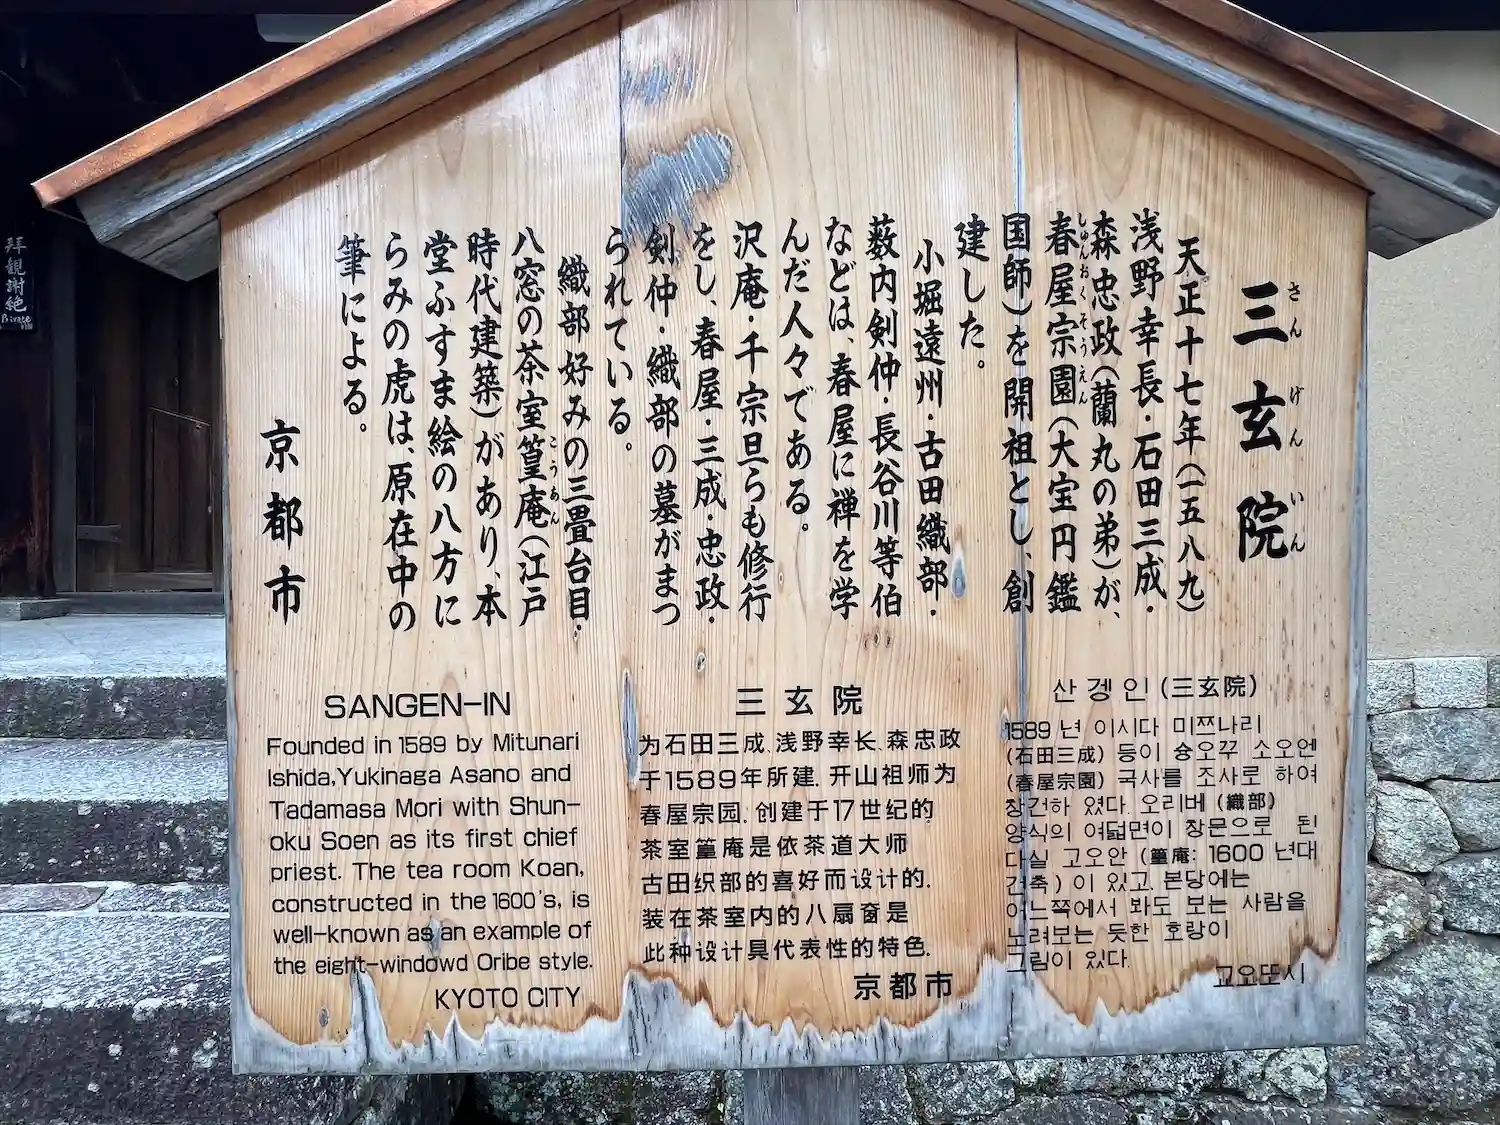 三玄院
さんげんいん
天正十七年(一五八九)
浅野幸長・石田三成・
森忠政(蘭丸の弟)が、
春屋宗園(大宝円鑑
しゅんおくそうえん
国師)を開祖とし、創
建した。
小堀遠州・古田織部・
薮内剣仲・長谷川等伯
などは、春屋に禅を学
んだ人々である。
沢庵・千宗旦らも修行
をし、春屋・三成・忠政・
剣仲・織部の墓がまつ
られている。
織部好みの三畳台目・
八窓の茶室篁庵(江戸
こうあん
時代建築)があり、本
堂ふすま絵の八方に
らみの虎は、原在中の
筆による。
京都市
SANGEN-IN
Founded in 1589 by Mitunari
Ishida,Yukinaga Asano and
Tadamasa Mori with Shun-
oku Soen as its first chief
priest. The tea room Koan,
constructed in the 1600's, is
well-known as an example of
the eight-windowd Oribe style.
KYOTO CITY
三玄院
为石田三成、浅野幸长、森忠政
于1589年所建. 开山祖师为
春屋宗园. 创建于17世纪的
茶室篁庵是依茶道大师
古田织部的喜好而设计的.
装在茶室内的八扇窗是
此种设计具代表性的特色.
京都市
산겡인(三玄院)
1589 년 이시다 미쯔나리
(石田三成) 등이 슝오꾸 소오엔
(春屋宗園) 국사를 조사로 하여
창건하 였다. 오리베 (織部)
양식의 여덟면이 창문으로 된
다실 고오안 (篁庵: 1600 년대
건축) 이 있고. 본당에는
어느쪽에서 봐도 보는 사람을
노려보는 듯한 호랑이
그림이 있다.
교오또시
拝観謝絶
Private